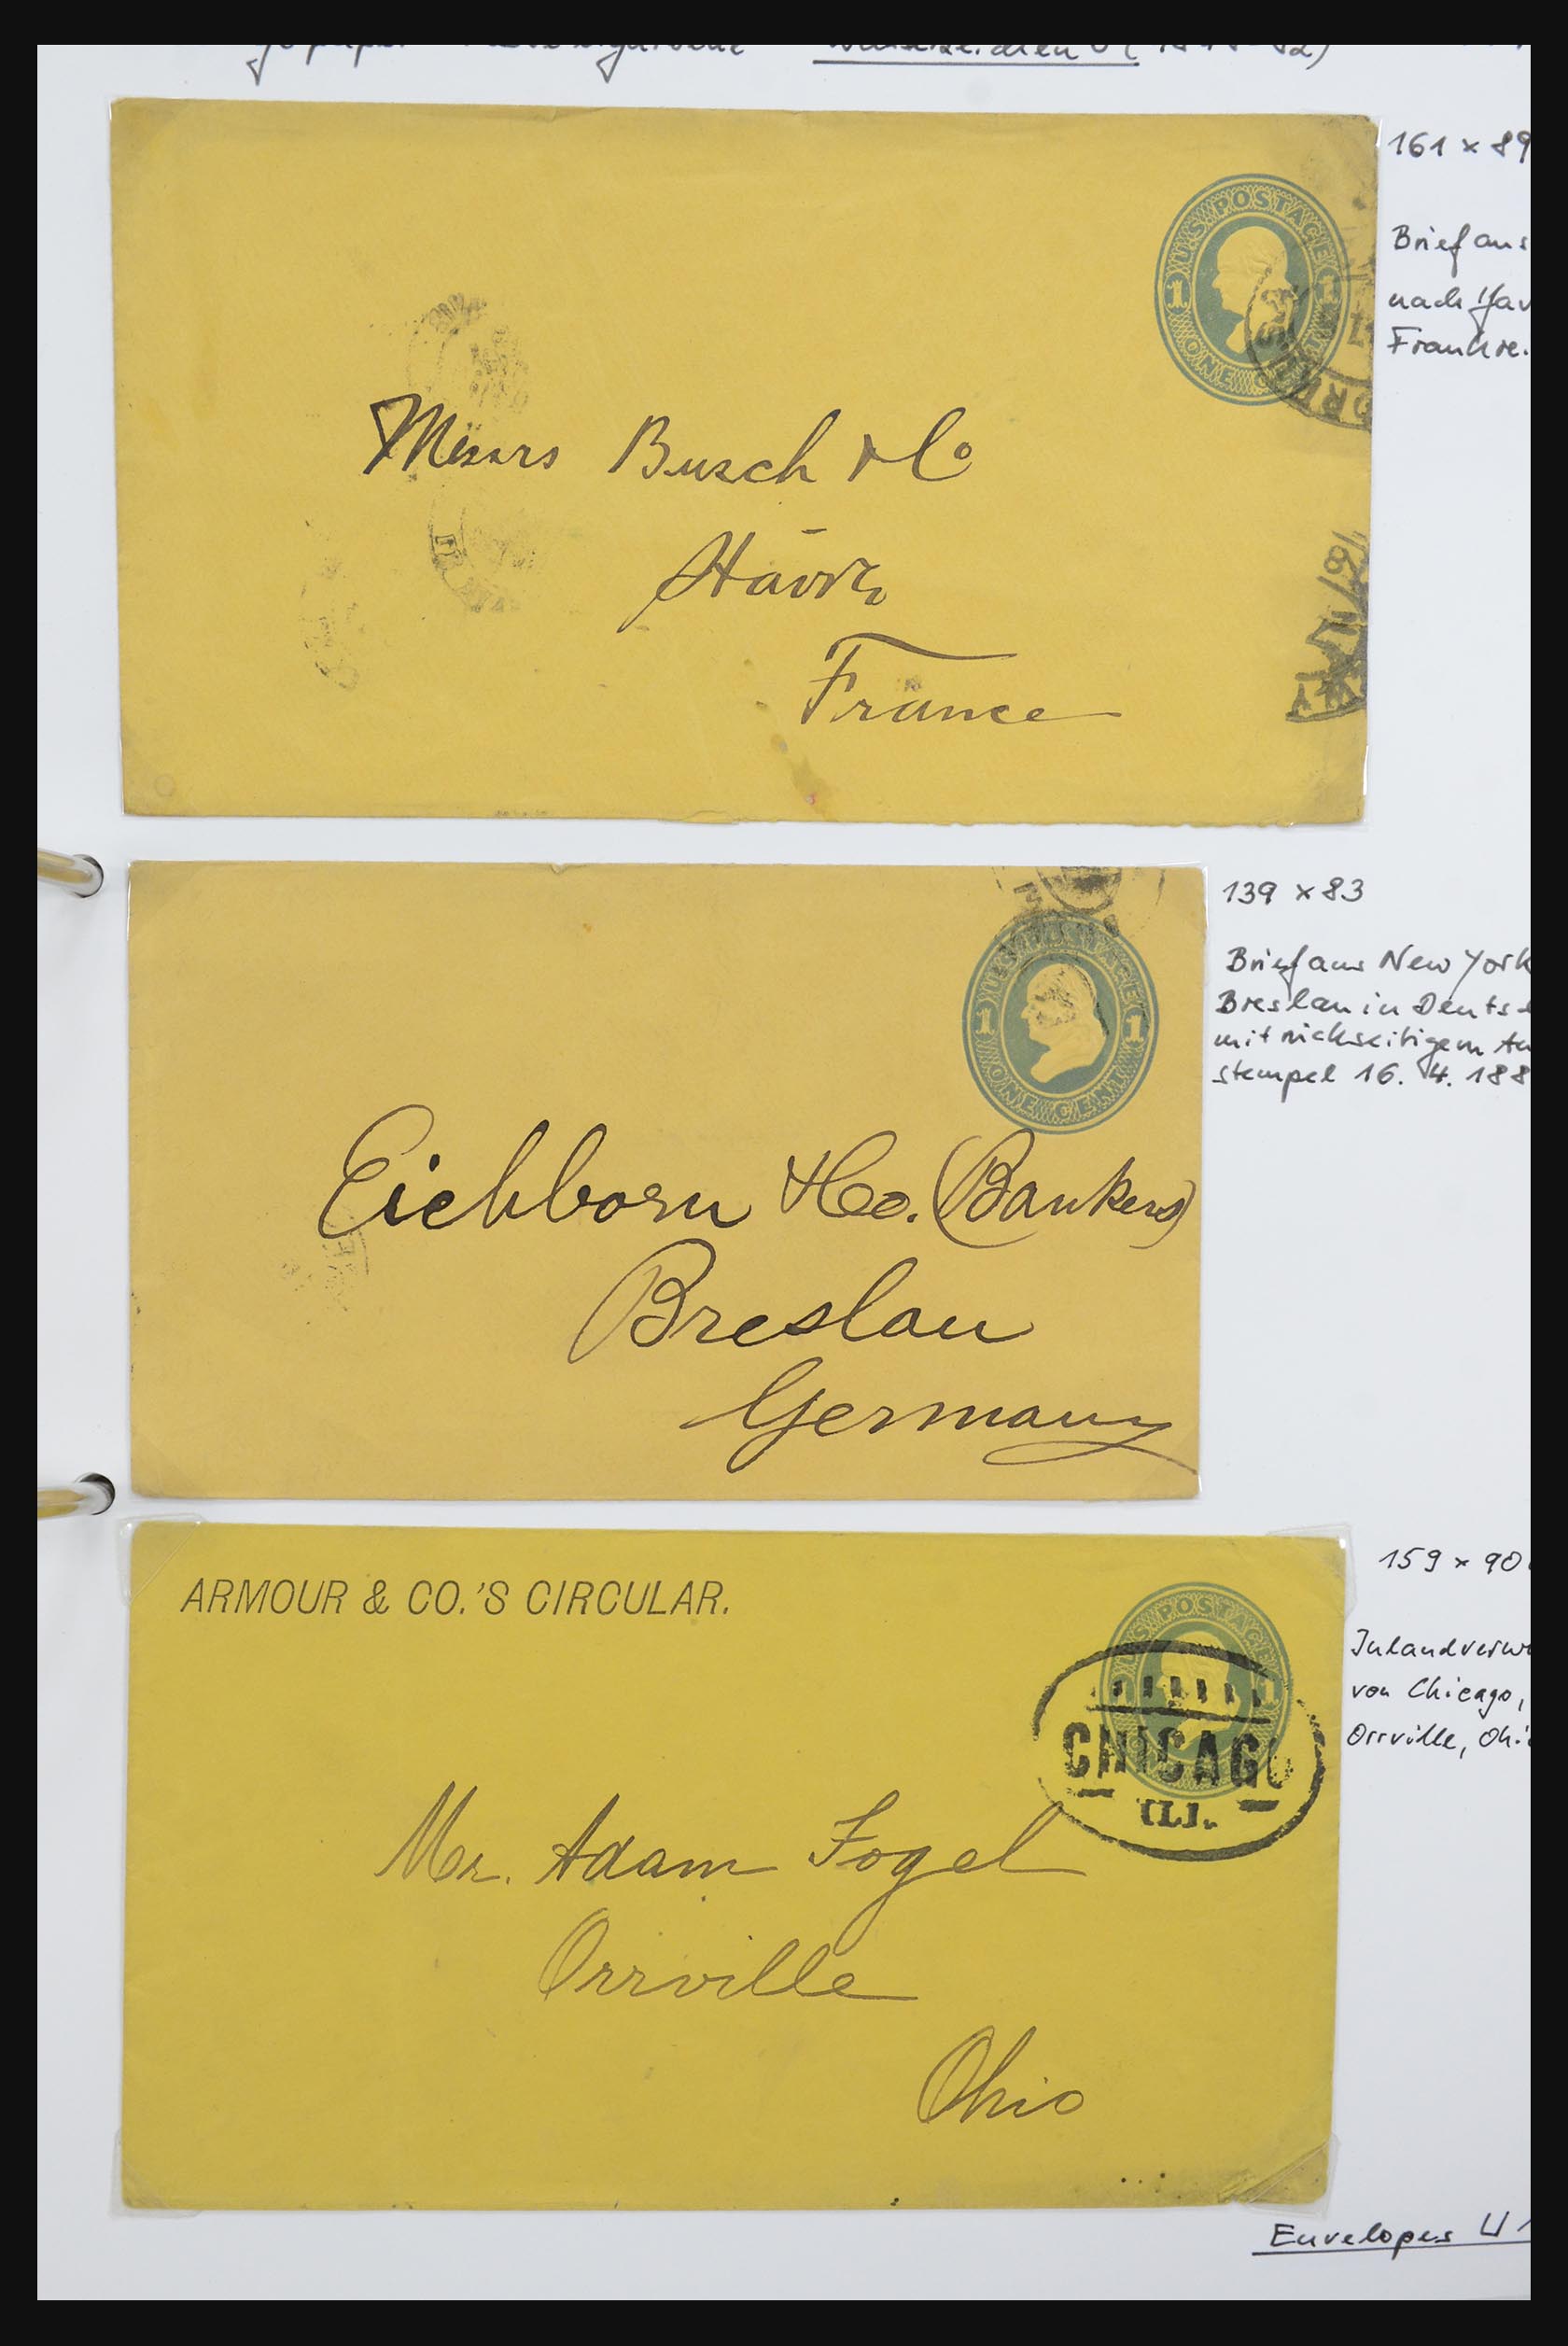 161 x 89
Brief aus
nach Hav
Frankre.
U.S. POSTAGE
1 1
ONE CENT
Messrs Busch & Co
Havre
France
139 x 83
Brief aus New York
Breslau in Deuts
mit rückseitigem An
stempel 16. 4. 188
U.S. POSTAGE
1 1
ONE CENT
Eichborn & Co. (Bankers)
Breslau
Germany
159 x 90
Inlandverw
von Chicago,
Orrville, Ohi
ARMOUR & CO.'S CIRCULAR.
U.S. POSTAGE
1
CHICAGO
ILL.
Mr. Adam Fogel
Orrville
Ohio
Envelopes U 1